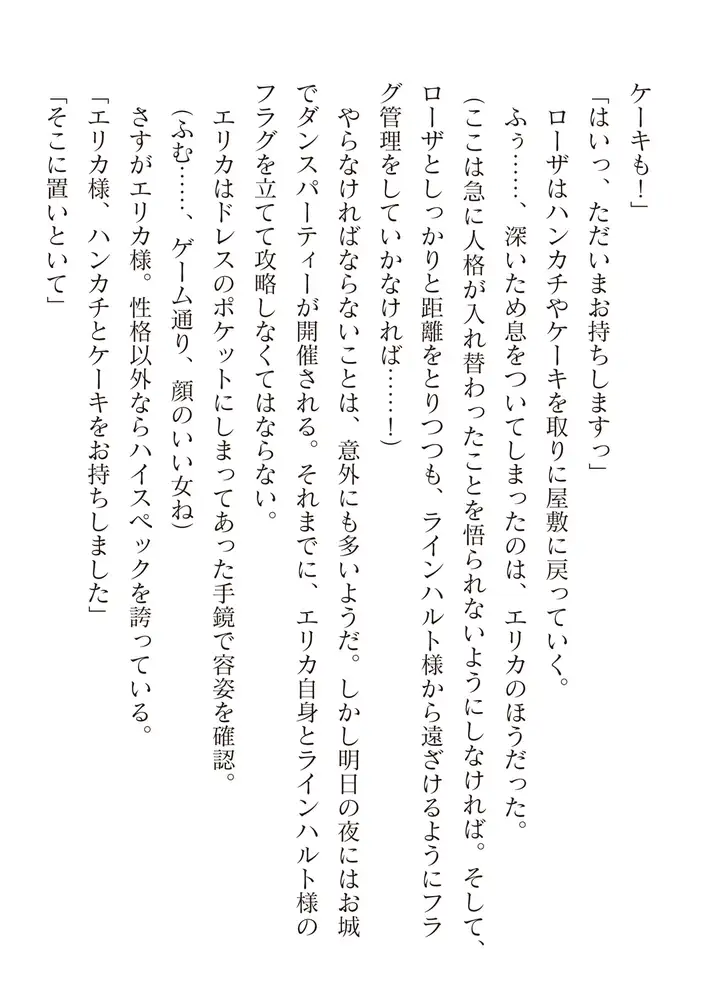 ケーキも！」
「はいっ、ただいまお持ちしますっ」
ローザはハンカチやケーキを取りに屋敷に戻っていく。
ふぅ……、深いため息をついてしまったのは、エリカのほうだった。
(ここは急に人格が入れ替わったことを悟られないようにしなければ。そして、
ローザとしっかりと距離をとりつつも、ラインハルト様から遠ざけるようにフラ
グ管理をしていかなければ……！)
やらなければならないことは、意外にも多いようだ。しかし明日の夜にはお城
でダンスパーティーが開催される。それまでに、エリカ自身とラインハルト様の
フラグを立てて攻略しなくてはならない。
エリカはドレスのポケットにしまってあった手鏡で容姿を確認。
(ふむ……、ゲーム通り、顔のいい女ね)
さすがエリカ様。性格以外ならハイスペックを誇っている。
「エリカ様、ハンカチとケーキをお持ちしました」
「そこに置いといて」